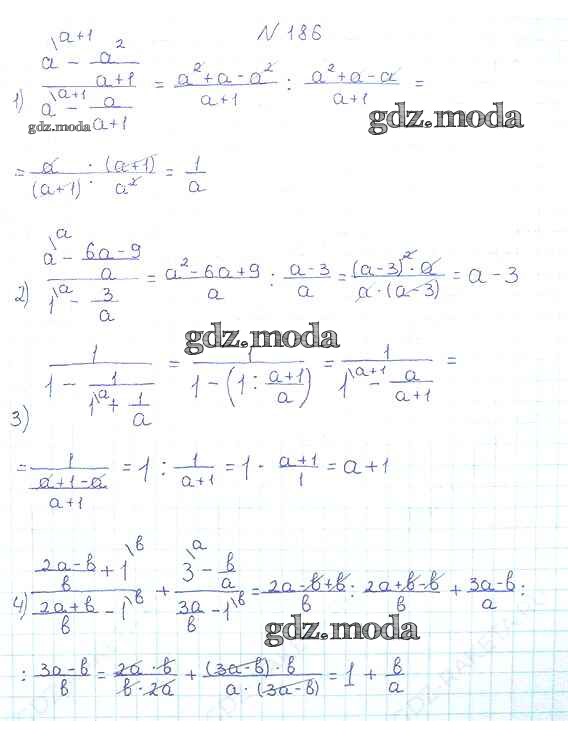 N 186
1) (a\a+1 - a²/(a+1))/(a\a+1 - a/(a+1)) = (a²+a-a²)/(a+1) : (a²+a-a)/(a+1) =
gdz.moda gdz.moda
= a/(a+1) · (a+1)/a² = 1/a
2) (a\a - (6a-9)/a)/(1\a - 3/a) = (a²-6a+9)/a : (a-3)/a = ((a-3)²·a)/(a·(a-3)) = a-3
gdz.moda
3) 1/(1 - 1/(1\a + 1/a)) = 1/(1-(1 : (a+1)/a)) = 1/(1\a+1 - a/(a+1)) =
= 1/((a+1-a)/(a+1)) = 1 : 1/(a+1) = 1 · (a+1)/1 = a+1
4) ((2a-b)/b + 1\b)/((2a+b)/b - 1\b) + (3\a - b/a)/(3a/b - 1\b) = (2a-b+b)/b : (2a+b-b)/b + (3a-b)/a :
gdz.moda
: (3a-b)/b = (2a·b)/(b·2a) + ((3a-b)·b)/(a·(3a-b)) = 1 + b/a